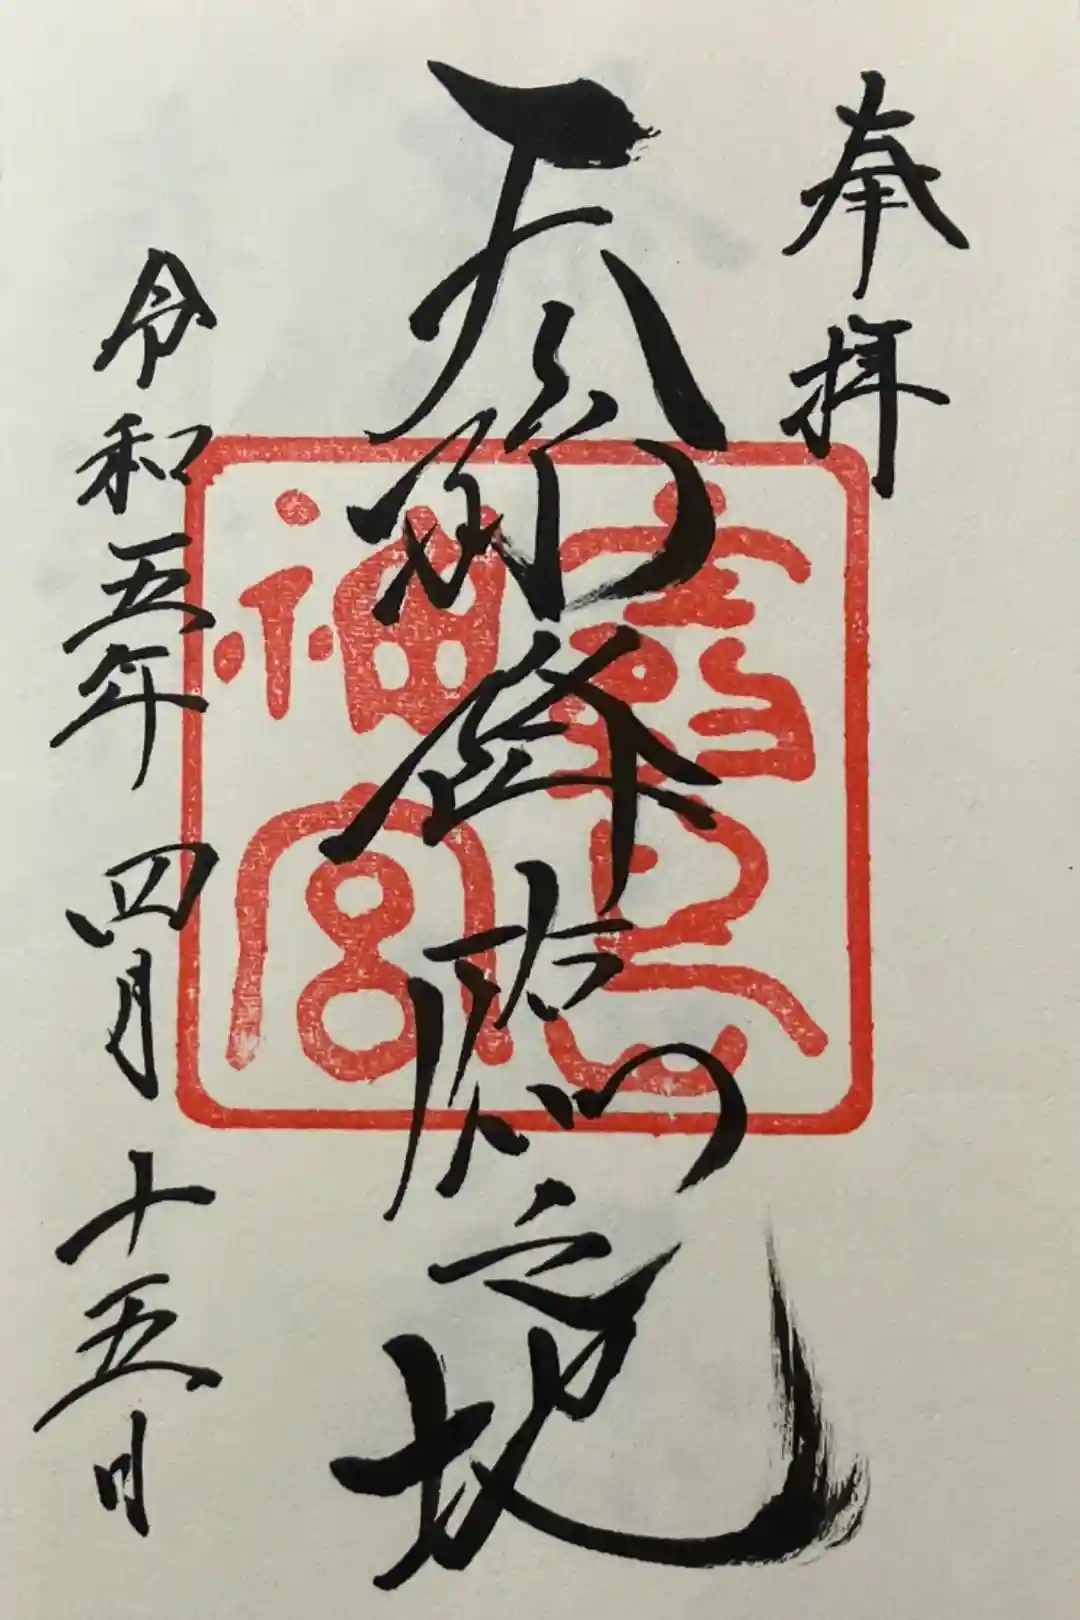 奉拝
天孫降臨之地
霧島
神宮
令和五年四月十五日